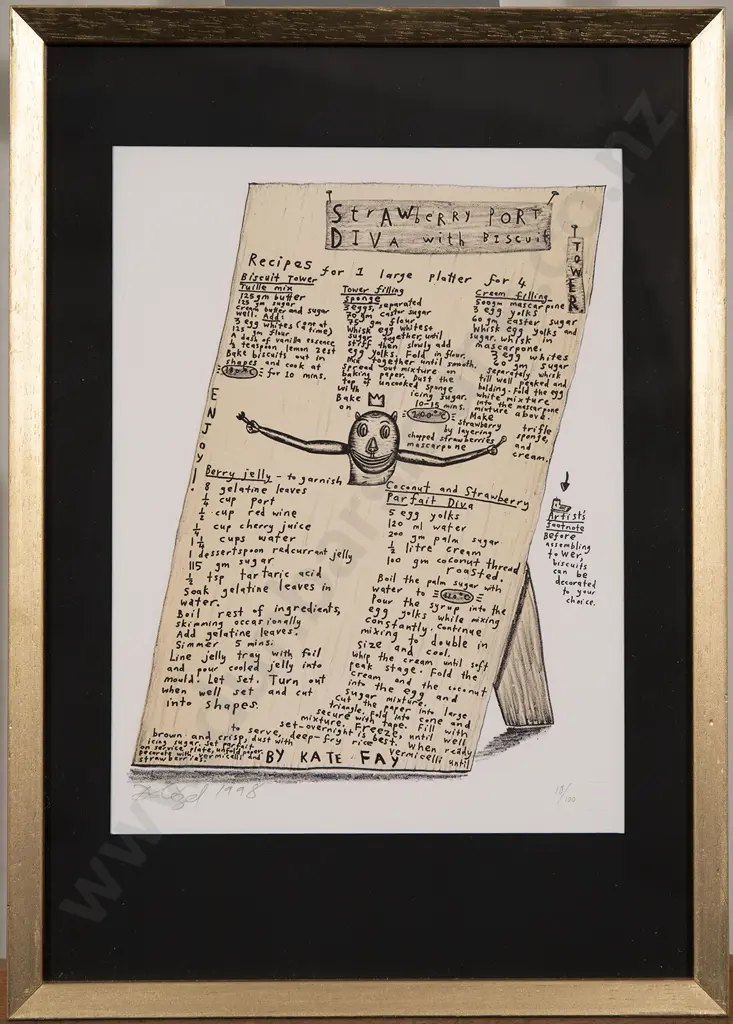 StrAWbeRRy PORT
DIVA with BISCUIT
TOWER
Recipes for 1 large platter for 4
Biscuit Tower
Tuille mix
125gm butter
125 gm sugar
cream butter and sugar
well. Add:
3 egg whites (one at
a time)
125 gm flour
A dash of vanilla essence
½ teaspoon lemon zest
Bake biscuits out in
shapes and cook at
180°C for 10 mins.
Tower filling
Sponge
3 eggs, separated
70 gm castor sugar
75 gm flour
Whisk egg whites &
sugar together, until
stiff then slowly add
egg yolks. Fold in flour.
Mix together until smooth.
Spread out mixture on
baking paper. Dust the
top of uncooked sponge
with icing sugar.
Bake 10-15 mins.
on 200°C
Cream filling
500gm mascarpone
3 egg yolks
60 gm castor sugar
Whisk egg yolks and
sugar. whisk in
mascarpone.
3 egg whites
60 gm sugar
Separately whisk
till well peaked and
holding. Fold the egg
white mixture
into the mascarpone
mixture above.
Make trifle
by layering sponge,
strawberry
chopped strawberries and
mascarpone cream.
ENJOY!
Berry jelly - to garnish
8 gelatine leaves
¼ cup port
½ cup red wine
¼ cup cherry juice
1½ cups water
1 dessertspoon redcurrant jelly
115 gm sugar
½ tsp tartaric acid
Soak gelatine leaves in
water.
Boil rest of ingredients,
skimming occasionally
Add gelatine leaves.
Simmer 5 mins.
Line jelly tray with foil
and pour cooled jelly into
mould. Let set. Turn out
when well set and cut
into shapes.
Coconut and Strawberry
Parfait Diva
5 egg yolks
120 ml water
200 gm palm sugar
½ litre cream
100 gm coconut thread
roasted.
Boil the palm sugar with
water to
Pour the syrup into the
egg yolks while mixing
constantly. Continue
mixing to double in
size and cool.
Whip the cream until soft
peak stage. Fold the
cream and the coconut
into the egg and
sugar mixture.
Cut the paper into large
triangle, fold into cone and
secure with tape. Fill with
mixture. Freeze, until well
set-overnight is best. When ready
to serve, deep-fry rice vermicelli until
brown and crisp, dust with
icing sugar. Set parfait
on service plate, unfold paper.
Decorate with vermicelli and
strawberries.
BY KATE FAY
Artist's
footnote
Before
assembling
tower,
biscuits
can be
decorated
to your
choice.
1998
18/100